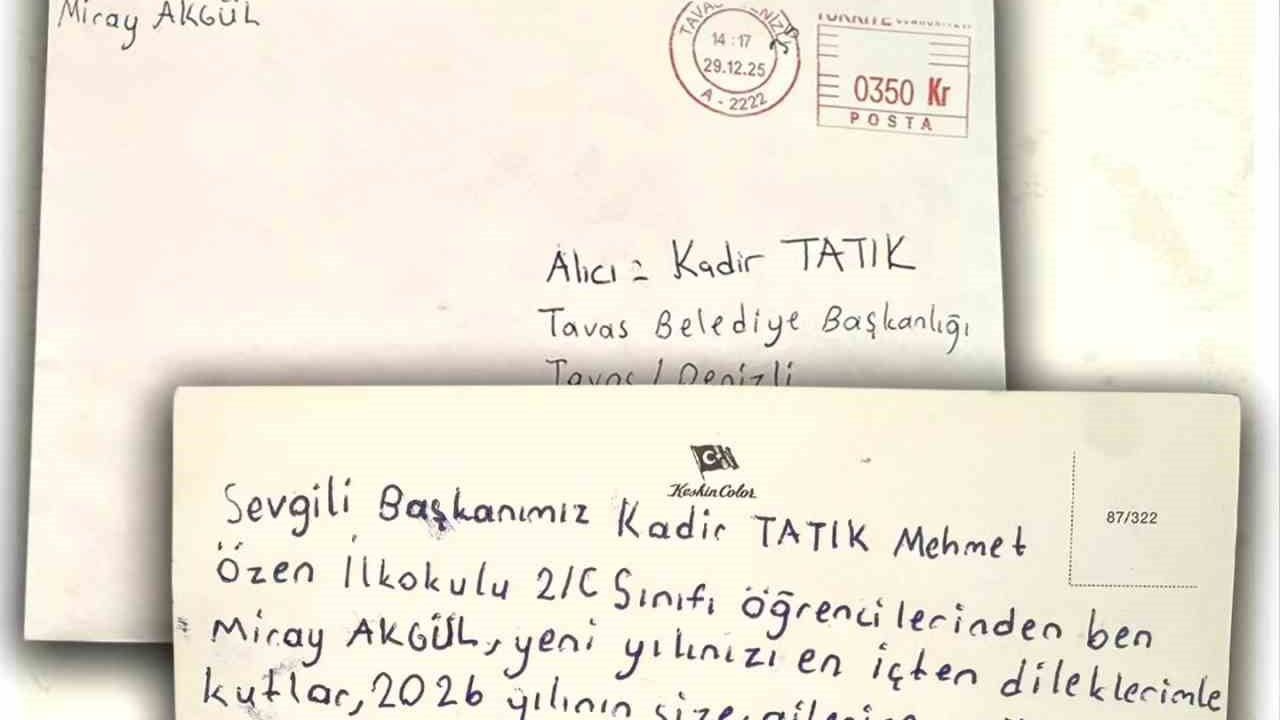 Miray AKGÜL
14:17
29.12.25
A - 2222
0350 Kr
POSTA
Alıcı = Kadir TATIK
Tavas Belediye Başkanlığı
Tavas / Denizli
Keskin Color
87/322
Sevgili Başkanımız Kadir TATIK Mehmet
Özen İlkokulu 2/C Sınıfı öğrencilerinden ben
Miray AKGÜL, yeni yılınızı en içten dileklerimle
kutlar, 2026 yılının size,